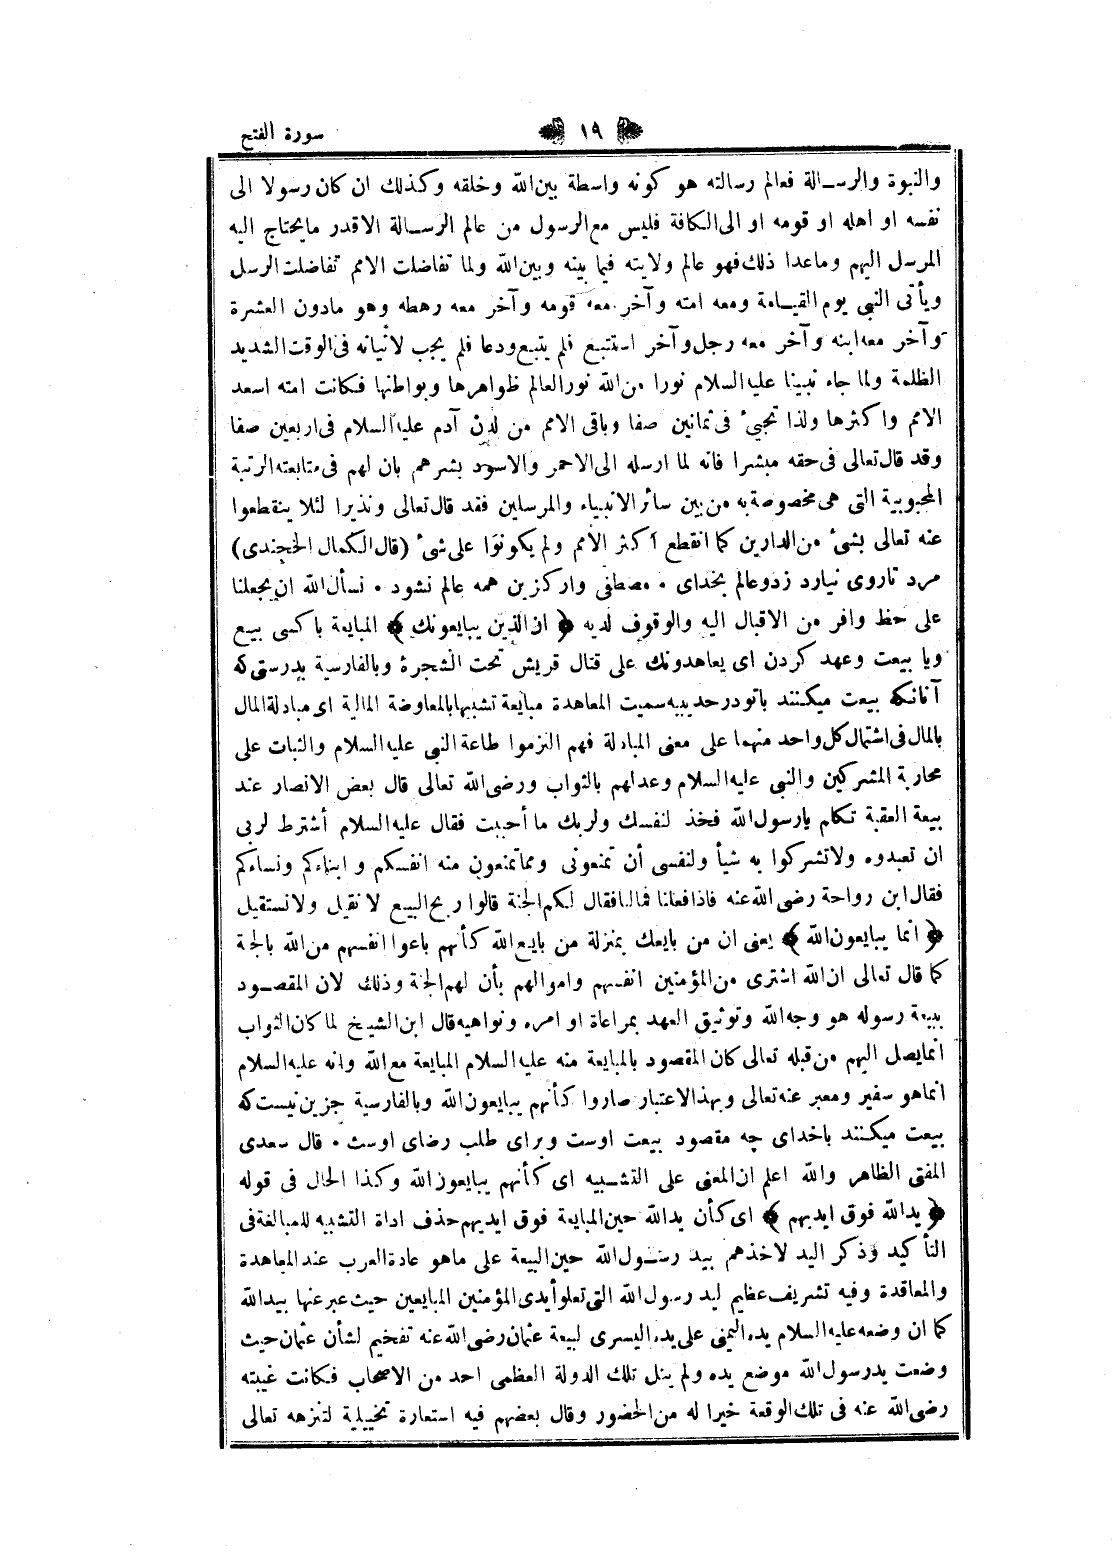 سورة الفتح
١٩
والنبوة والرسالة فعالم رسالته هو كونه واسطة بين الله وخلقه وكذلك ان كان رسولا الى
نفسه او اهله او قومه او الى الكافة فليس مع الرسول من عالم الرسالة الاقدر ما يحتاج اليه
المرسل اليهم وماعدا ذلك فهو عالم ولايته فيما بينه وبين الله ولما تفاضلت الامم تفاضلت الرسل
ويأتى النبى يوم القيامة ومعه امته وآخر معه قومه وآخر معه رهطه وهو مادون العشرة
وآخر معه ابنه وآخر معه رجل وآخر استتبع فلم يتبع ودعا فلم يجب لاتيانه فى الوقت الشديد
الظلمة ولما جاء نبينا عليه السلام نورا من الله نور العالم ظواهرها وبواطنها فكانت امته اسعد
الامم واكثرها ولذا تجيئ فى ثمانين صفا وباقى الامم من لدن آدم عليه السلام فى اربعين صفا
وقد قال تعالى فى حقه مبشرا فانه لما ارسله الى الاحمر والاسود بشرهم بان لهم فى متابعته الرتبة
المحبوبية التى هى مخصوصة به من بين سائر الانبياء والمرسلين فقد قال تعالى ونذيرا لئلا ينقطعوا
عنه تعالى بشئ من الدارين كما انقطع اكثر الامم ولم يكونوا على شئ (قال الكمال الخجندى)
مرد تاروى نيارد زدوعالم بخداى • مصطفى واركزين همه عالم نشود • نسأل الله ان يجعلنا
على حظ وافر من الاقبال اليه والوقوف لديه ﴿ ان الذين يبايعونك ﴾ المبايعة باكسى بيع
ويا بيعت وعهد كردن اى يعاهدونك على قتال قريش تحت الشجرة وبالفارسية بدرستى كه
آنانكه بيعت ميكنند باتودر حديبيه سميت المعاهدة مبايعة تشبيها بالمعاوضة المالية اى مبادلة المال
بالمال فى اشتمال كل واحد منهما على معنى المبادلة فهم التزموا طاعة النبى عليه السلام والثبات على
محاربة المشركين والنبى عليه السلام وعدلهم بالثواب ورضى الله تعالى قال بعض الانصار عند
بيعة العقبة تكلم يارسول الله فخذ لنفسك ولربك ما أحببت فقال عليه السلام أشترط لربى
ان تعبدوه ولاتشركوا به شيأ ولنفسى أن تمنعونى ومما تمنعون منه انفسكم و ابناءكم ونساءكم
فقال ابن رواحة رضى الله عنه فاذا فعلنا فمالنا فقال لكم الجنة قالوا ربح البيع لا نقيل ولانستقيل
﴿ انما يبايعون الله ﴾ يعنى ان من بايعك بمنزلة من بايع الله كأنهم باعوا انفسهم من الله بالجنة
كما قال تعالى ان الله اشترى من المؤمنين انفسهم واموالهم بأن لهم الجنة وذلك لان المقصود
ببيعة رسوله هو وجه الله وتوثيق العهد بمراعاة او امره ونواهيه قال ابن الشيخ لما كان الثواب
انما يصل اليهم من قبله تعالى كان المقصود بالمبايعة منه عليه السلام المبايعة مع الله وانه عليه السلام
انما هو سفير ومعبر عنه تعالى وبهذا الاعتبار صاروا كأنهم يبايعون الله وبالفارسية جزين نيست كه
بيعت ميكنند باخداى چه مقصود بيعت اوست وبراى طلب رضاى اوست • قال سعدى
المفتى الظاهر والله اعلم ان المعنى على التشبيه اى كأنهم يبايعون الله وكذا الحال فى قوله
﴿ يد الله فوق ايديهم ﴾ اى كأن يد الله حين المبايعة فوق ايديهم حذف اداة التشبيه للمبالغة فى
التأكيد وذكر اليد لاخذهم بيد رسول الله حين البيعة على ماهو عادة العرب عند المعاهدة
والمعاقدة وفيه تشريف عظيم ليد رسول الله التى تعلو أيدى المؤمنين المبايعين حيث عبر عنها بيد الله
كما ان وضعه عليه السلام يده اليمنى على يده اليسرى لبيعة عثمان رضى الله عنه تفخيم لشأن عثمان حيث
وضعت يد رسول الله موضع يده ولم ينل تلك الدولة العظمى احد من الاصحاب فكانت غيبته
رضى الله عنه فى تلك الوقعة خيرا له من الحضور وقال بعضهم فيه استعارة تخييلية لتنزهه تعالى